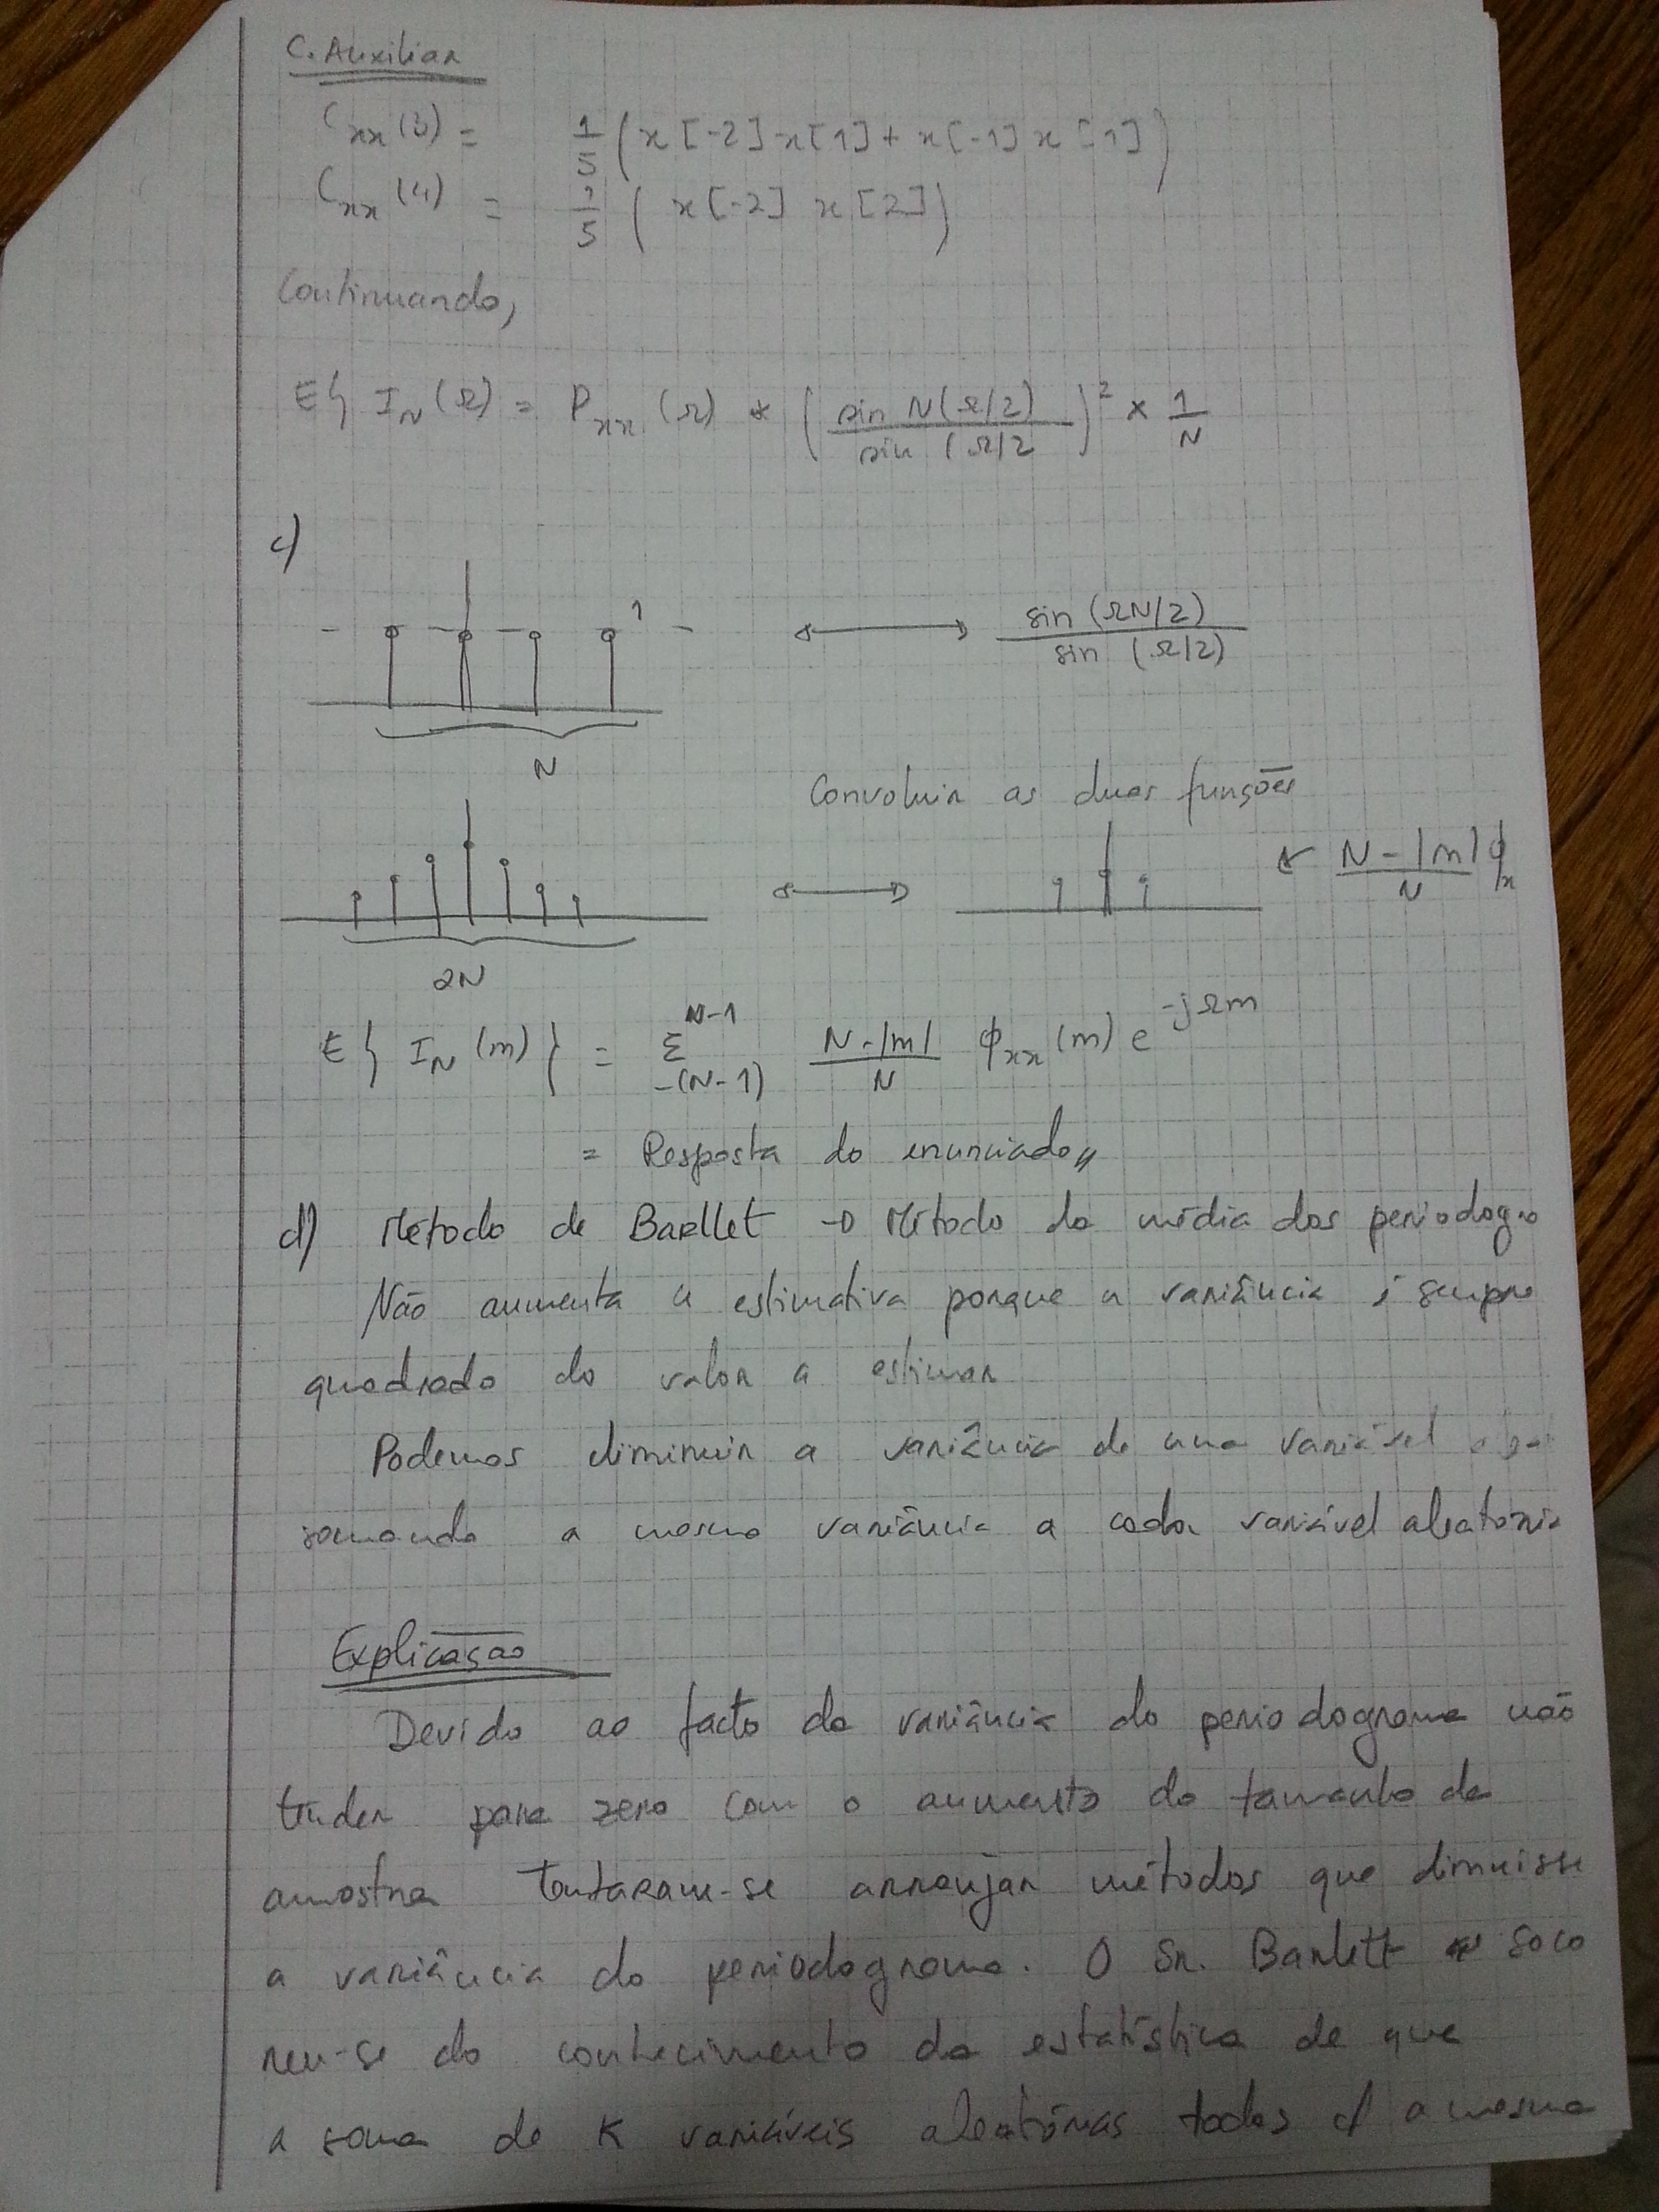 C. Auxiliar
Cxx(3) = 1/5 (x[-2] x[1] + x[-1] x[1])
Cxx(4) = 1/5 (x[-2] x[2])
Continuando,
E{ I_N(Ω) = Pxx(Ω) * (sin N(Ω/2) / sin (Ω/2)² × 1/N
c)
1
↔ sin (ΩN/2) / sin (Ω/2)
N
Convoluir as duas funções
↔ ← N-|m| / N ϕx
2N
E{ I_N(m) } = Σ_{-(N-1)}^{N-1} N-|m| / N ϕxx(m) e^{-jΩm}
= Resposta do enunciado //
d) Método de Barllet → Método da média dos periodog
Não aumenta a estimativa porque a variância é sempre
quadrado do valor a estimar
Podemos diminuir a variância de uma variável
somando a mesma variância a cada variável aleatória
Explicação
Devido ao facto da variância do periodograma não
tender para zero com o aumento do tamanho da
amostra tentaram-se arranjar métodos que dimuisse
a variância do periodograma. O Sr. Barlett soco
rreu-se do conhecimento da estatística de que
a soma de K variáveis aleatórias todas c/ a mesma